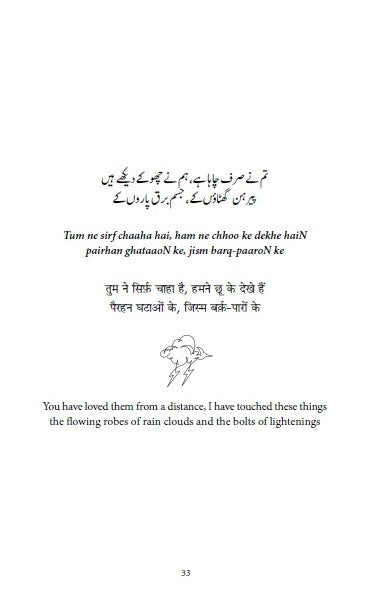 تم نے صرف چاہا ہے، ہم نے چھو کے دیکھے ہیں
پیرہن گھٹاؤں کے، جسم برق پاروں کے
Tum ne sirf chaaha hai, ham ne chhoo ke dekhe haiN
pairhan ghataaoN ke, jism barq-paaroN ke
तुम ने सिर्फ़ चाहा है, हमने छू के देखे हैं
पैरहन घटाओं के, जिस्म बर्क़-पारों के
You have loved them from a distance, I have touched these things
the flowing robes of rain clouds and the bolts of lightenings
33